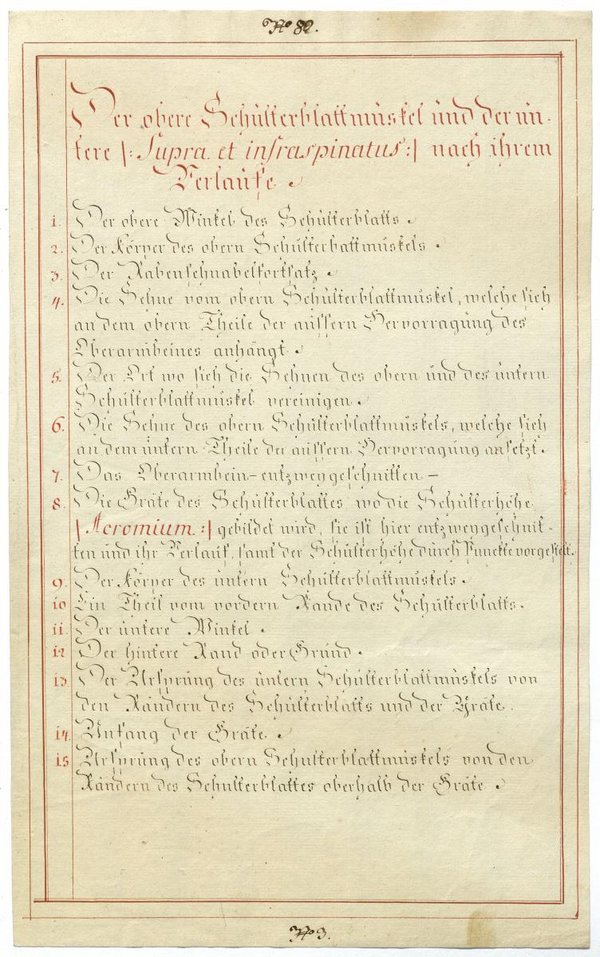 No 82.
Der obere Schulterblattmuskel und der un-
tere |: Supra et infraspinatus :| nach ihrem
Verlaufe.
1. Der obere Winkel des Schulterblatts.
2. Der Körper des obern Schulterbattmuskels.
3. Der Rabenschnabelfortsatz.
4. Die Sehne vom obern Schulterblattmuskel, welche sich
an dem obern Theile der äussern Hervorragung des
Oberarmbeines anhängt.
5. Der Ort wo sich die Sehnen des obern und des untern
Schulterblattmuskel vereinigen.
6. Die Sehne des obern Schulterblattmuskels, welche sich
an dem untern Theile der äussern Hervorragung ansetzt.
7. Das Oberarmbein – entzweygeschnitten –
8. Die Gräte des Schulterblattes wo die Schulterhöhe
|: Acromium :| gebildet wird, sie ist hier entzweygeschnit-
ten und ihr Verlauf, samt der Schulterhöhe durch Punckte vorgestellt.
9. Der Körper des untern Schulterblattmuskels.
10 Ein Theil vom vordern Rande des Schulterblatts.
11. Der untere Winkel.
12 Der hintere Rand oder Grund.
13. Der Ursprung des untern Schulterblattmuskels von
den Rändern des Schulterblatts und der Gräte.
14. Anfang der Gräte.
15 Ursprung des obern Schulterblattmuskels von den
Rändern des Schulterblattes oberhalb der Gräte.
No 3.